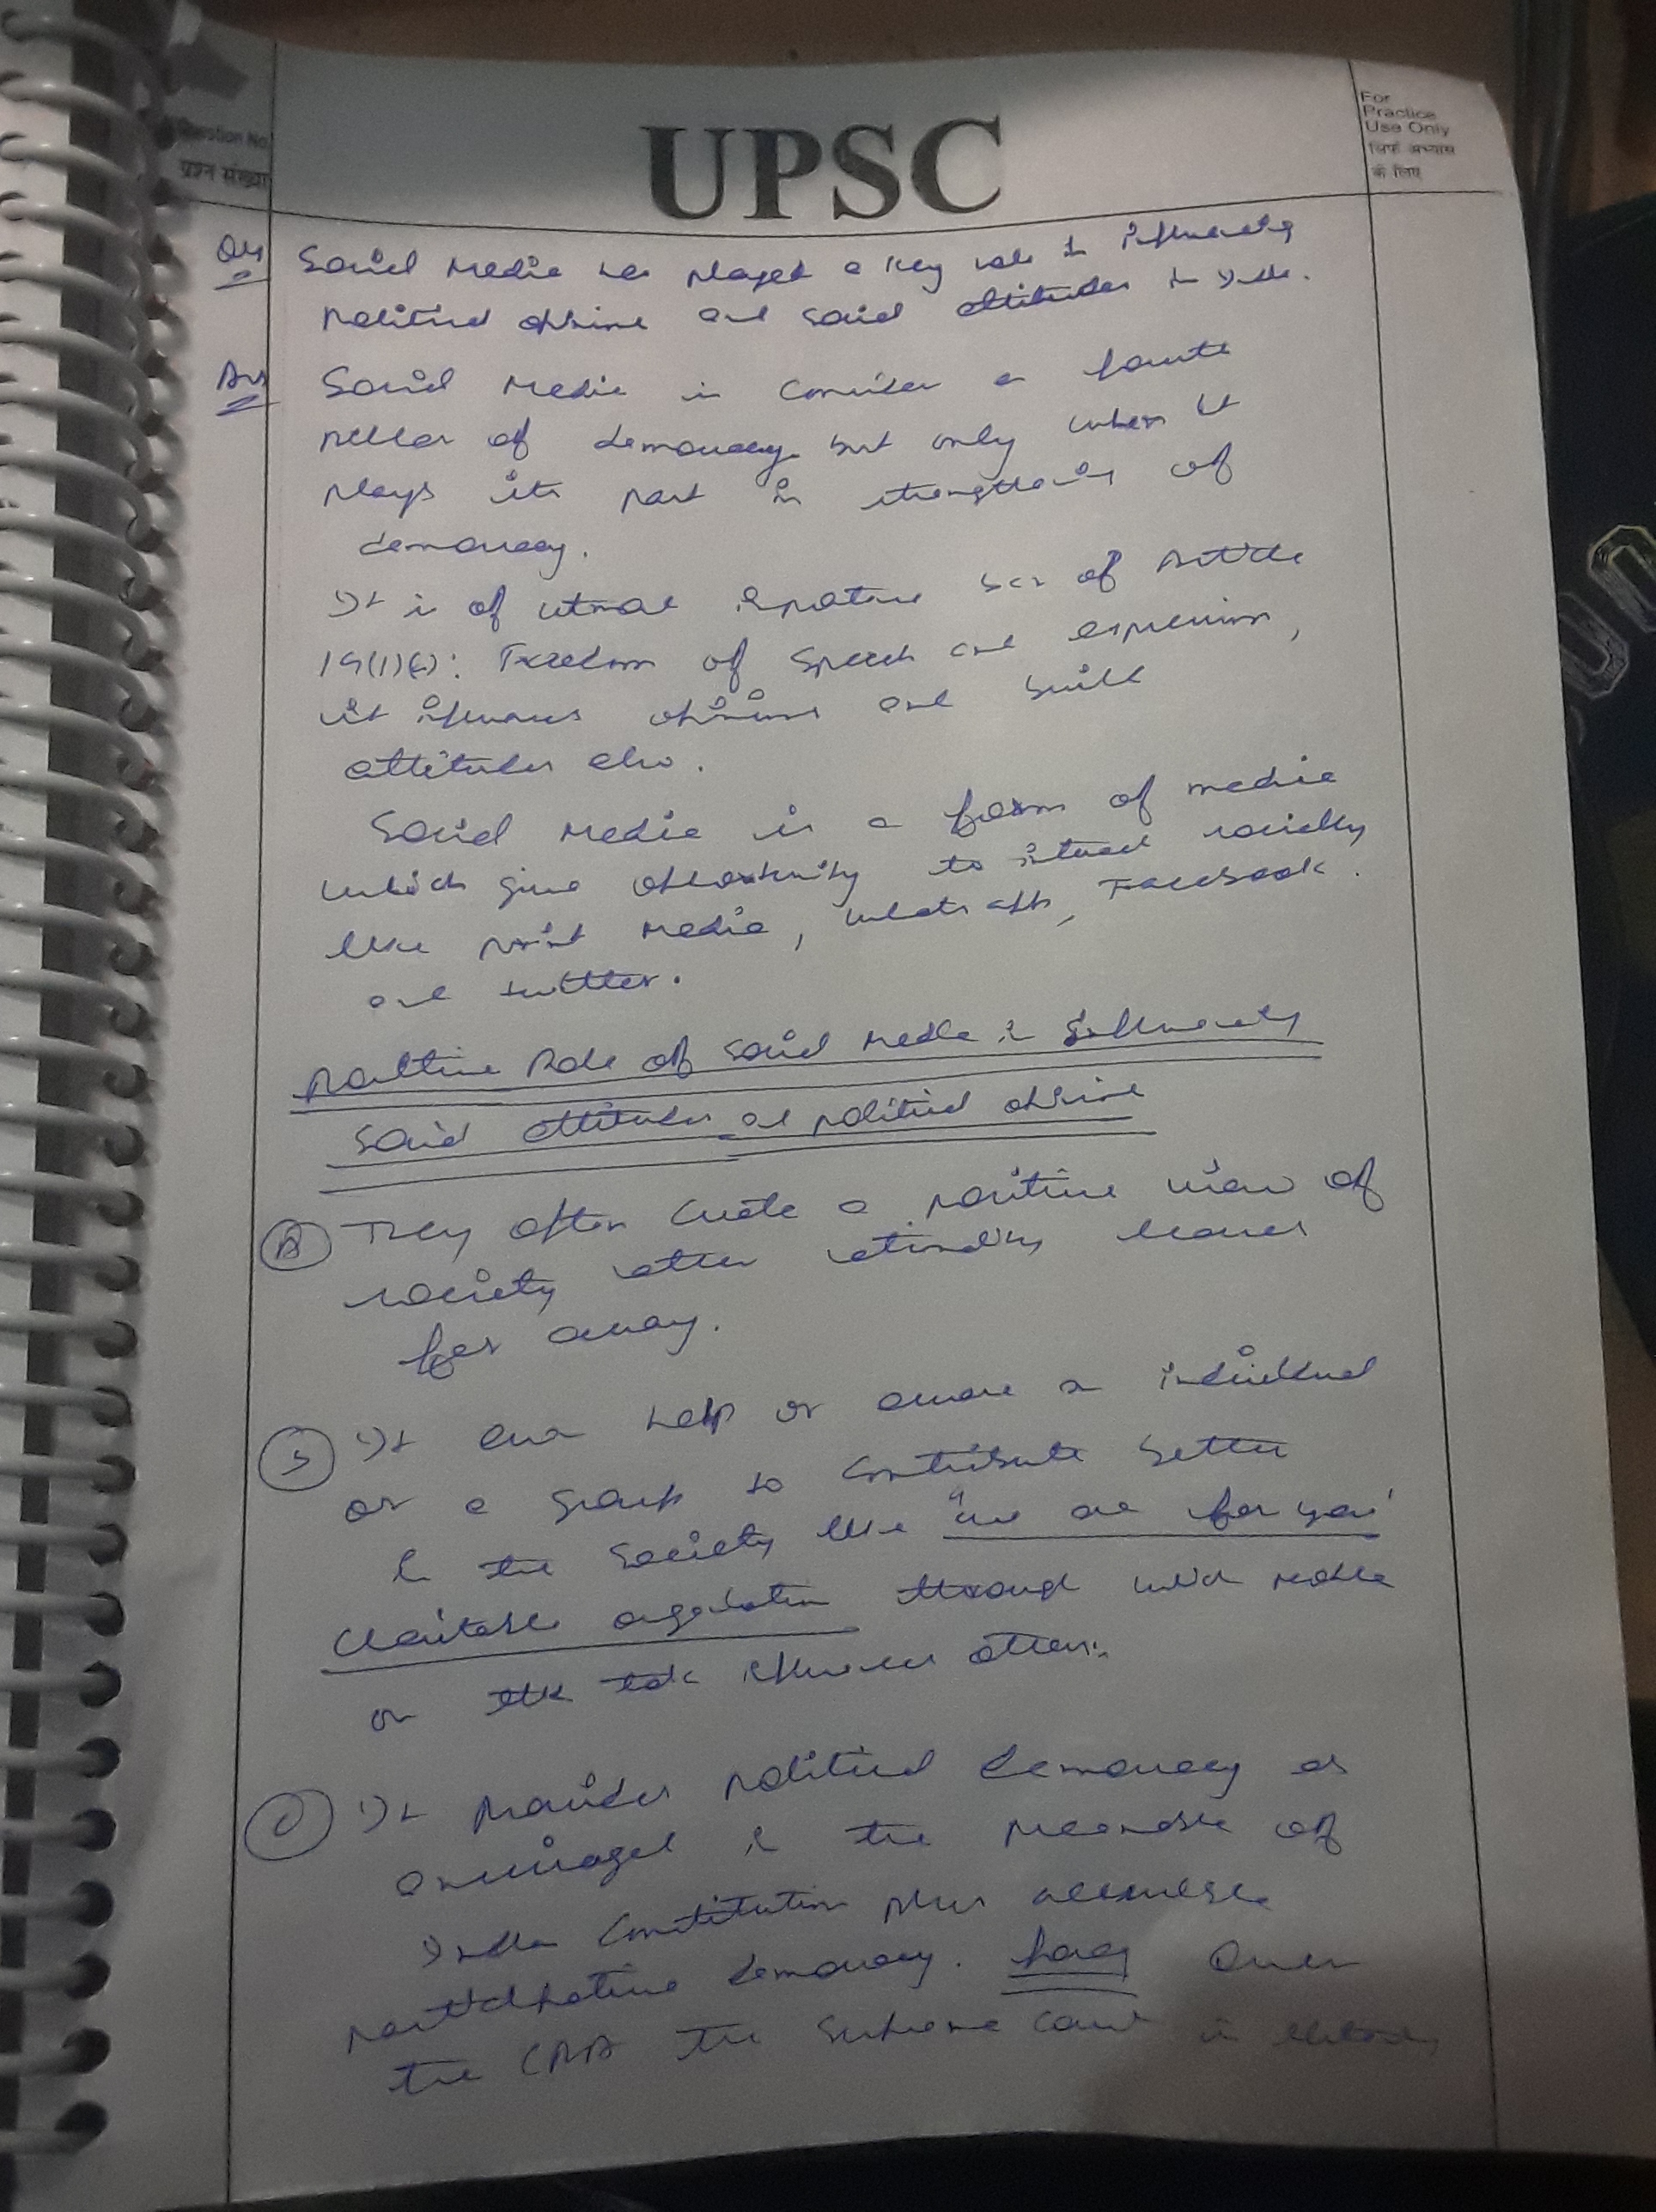 Question No.
प्रश्न संख्या
UPSC
For
Practice
Use Only
सिर्फ अभ्यास
के लिए
Social Media has played a key role in influencing
Political opinion and social attitudes in India.
Ans Social Media is consider a fourth
pillar of democracy but only when it
plays its part in strengthening of
democracy.
It is of utmost importance of Article
19(1)(a): Freedom of Speech and expression,
it influences opinions and build
attitudes also.
Social Media is a form of media
which give opportunity to interact socially
like print media, whats app, Facebook
and twitter.
Positive Role of Social Media in Influencing
Social attitudes and political opinion
A They often create a positive view of
society
far away.
B It can help or aware an individual
or a group to contribute better
in the society like "we are for you"
charitable organization through which media
or tik tok influences others.
C It provides political democracy as
envisaged in the preamble of
Indian Constitution plus
participative democracy. Over
the CAA the Supreme Court is